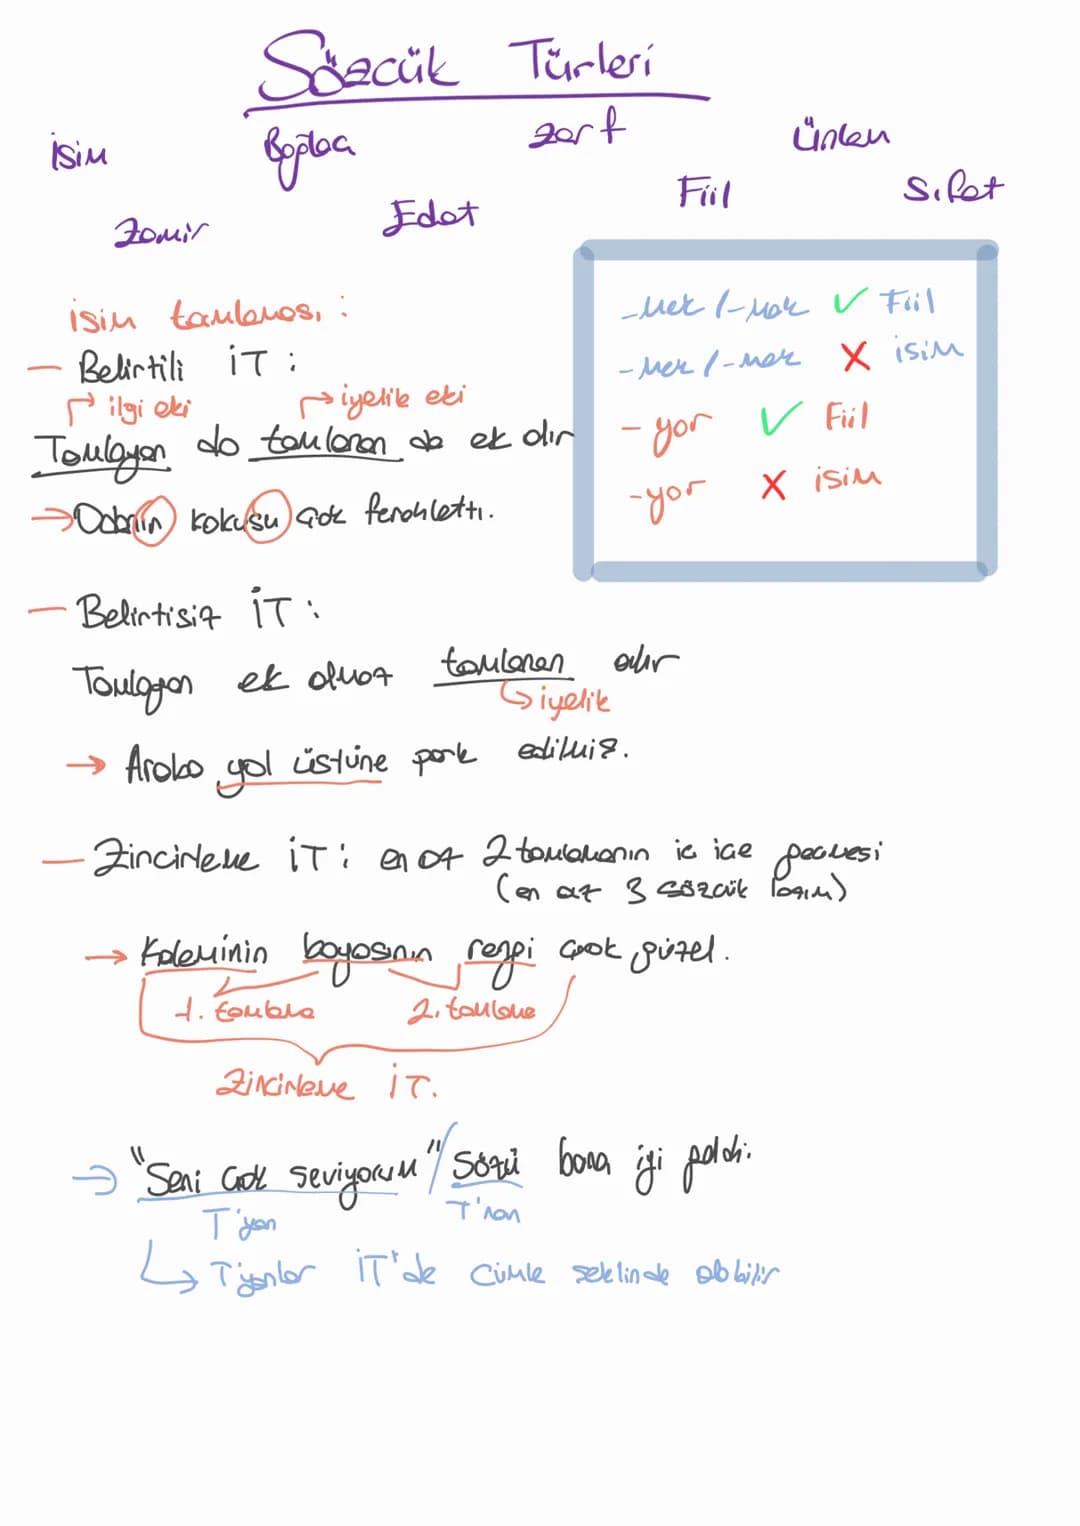 Sözcük Türleri
İsim Bağlaç Zarf Ünlem
Zamir Edat Fiil Sıfat
-mek /-mak ✓ Fiil
-mek /-mak X isim
-yor ✓ Fiil
-yor X isim
isim tamlaması :
— Belirtili İT :
→ ilgi eki → iyelik eki
Tamlayan da tamlanan da ek alır
→ Odanın kokusu çok ferahlattı.
— Belirtisiz İT :
Tamlayan ek almaz tamlanan alır
↳ iyelik
→ Araba yol üstüne park edilmiş.
— Zincirleme İT : en az 2 tamlamanın iç içe geçmesi
(en az 3 sözcük lazım)
→ Kaleminin boyasının rengi çok güzel.
1. tamlama 2. tamlama
Zincirleme İT.
→ "Seni çok seviyorum" / Sözü bana iyi geldi.
T'yan T'nan
↳ T'yanlar İT'de cümle şeklinde olabilir